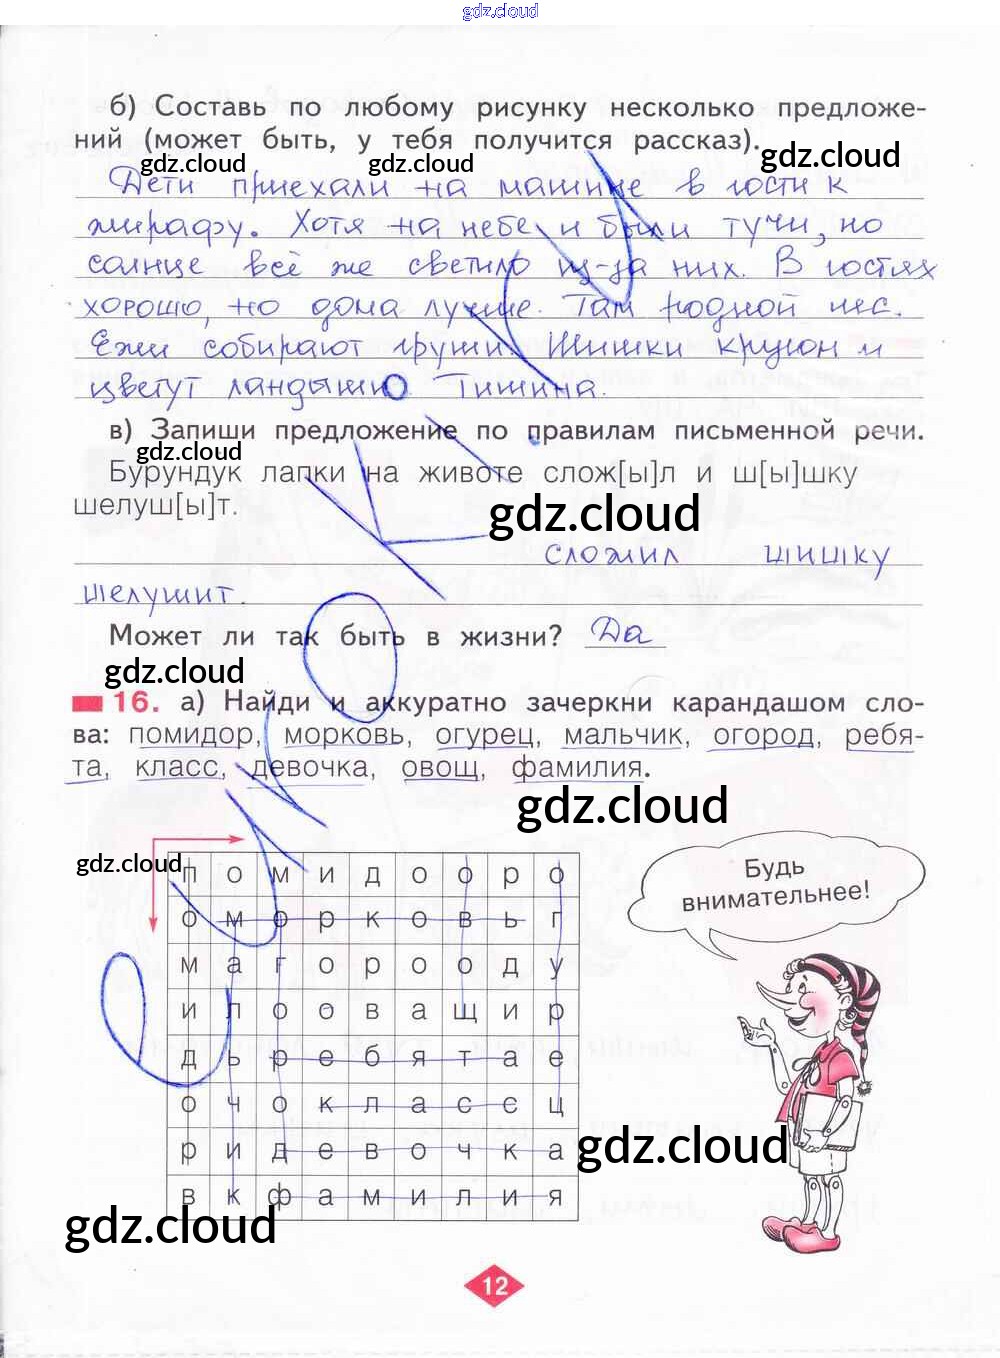 gdz.cloud
б) Составь по любому рисунку несколько предложе-
ний (может быть, у тебя получится рассказ).
gdz.cloud gdz.cloud gdz.cloud
Дети приехали на машине в гости к
жирафу. Хотя на небе и были тучи, но
солнце всё же светило из-за них. В гостях
хорошо, но дома лучше. Там родной лес.
Ежи собирают груши. Шишки кругом и
цветут ландыши. Тишина.
в) Запиши предложение по правилам письменной речи.
gdz.cloud
Бурундук лапки на животе слож[ы]л и ш[ы]шку
шелуш[ы]т.
gdz.cloud
сложил шишку
шелушит.
Может ли так быть в жизни? Да
gdz.cloud
16. а) Найди и аккуратно зачеркни карандашом сло-
ва: помидор, морковь, огурец, мальчик, огород, ребя-
та, класс, девочка, овощ, фамилия.
gdz.cloud
gdz.cloud
Будь
внимательнее!
п о м и д о о р о
о м о р к о в ь г
м а г о р о о д у
и л о о в а щ и р
д ь р е б я т а е
о ч о к л а с с ц
р и д е в о ч к а
в к ф а м и л и я
gdz.cloud
gdz.cloud
12